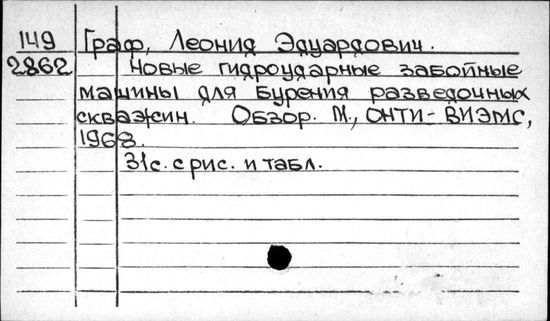 149 Граф, Леонид Эдуардович.
2862 Новые гидроударные забойные
машины для бурения разведочных
скважин. Обзор. М., ОНТИ-ВИЭМС,
1968.
31с. с рис. и табл.